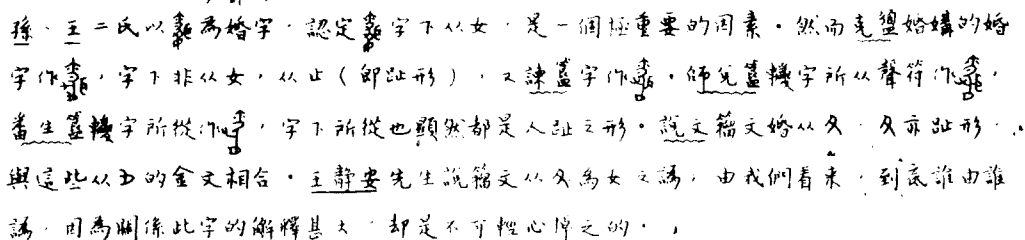 孫、王二氏以為婚字，認定字下从女，是一個極重要的因素。然而克盨婚媾的婚
字作，字下非从女，从止（即趾形），又諫簋字作。師兌簋𨏒字所从聲符作，
番生簋𨏒字所從作，字下所從也顯然都是人趾之形。說文籀文婚从夊，夊亦趾形，
與這些从止的金文相合。王靜安先生說籀文从夊為女之譌，由我們看來，到底誰由誰
譌，因為關係此字的解釋甚大，却是不可輕心掉之的。